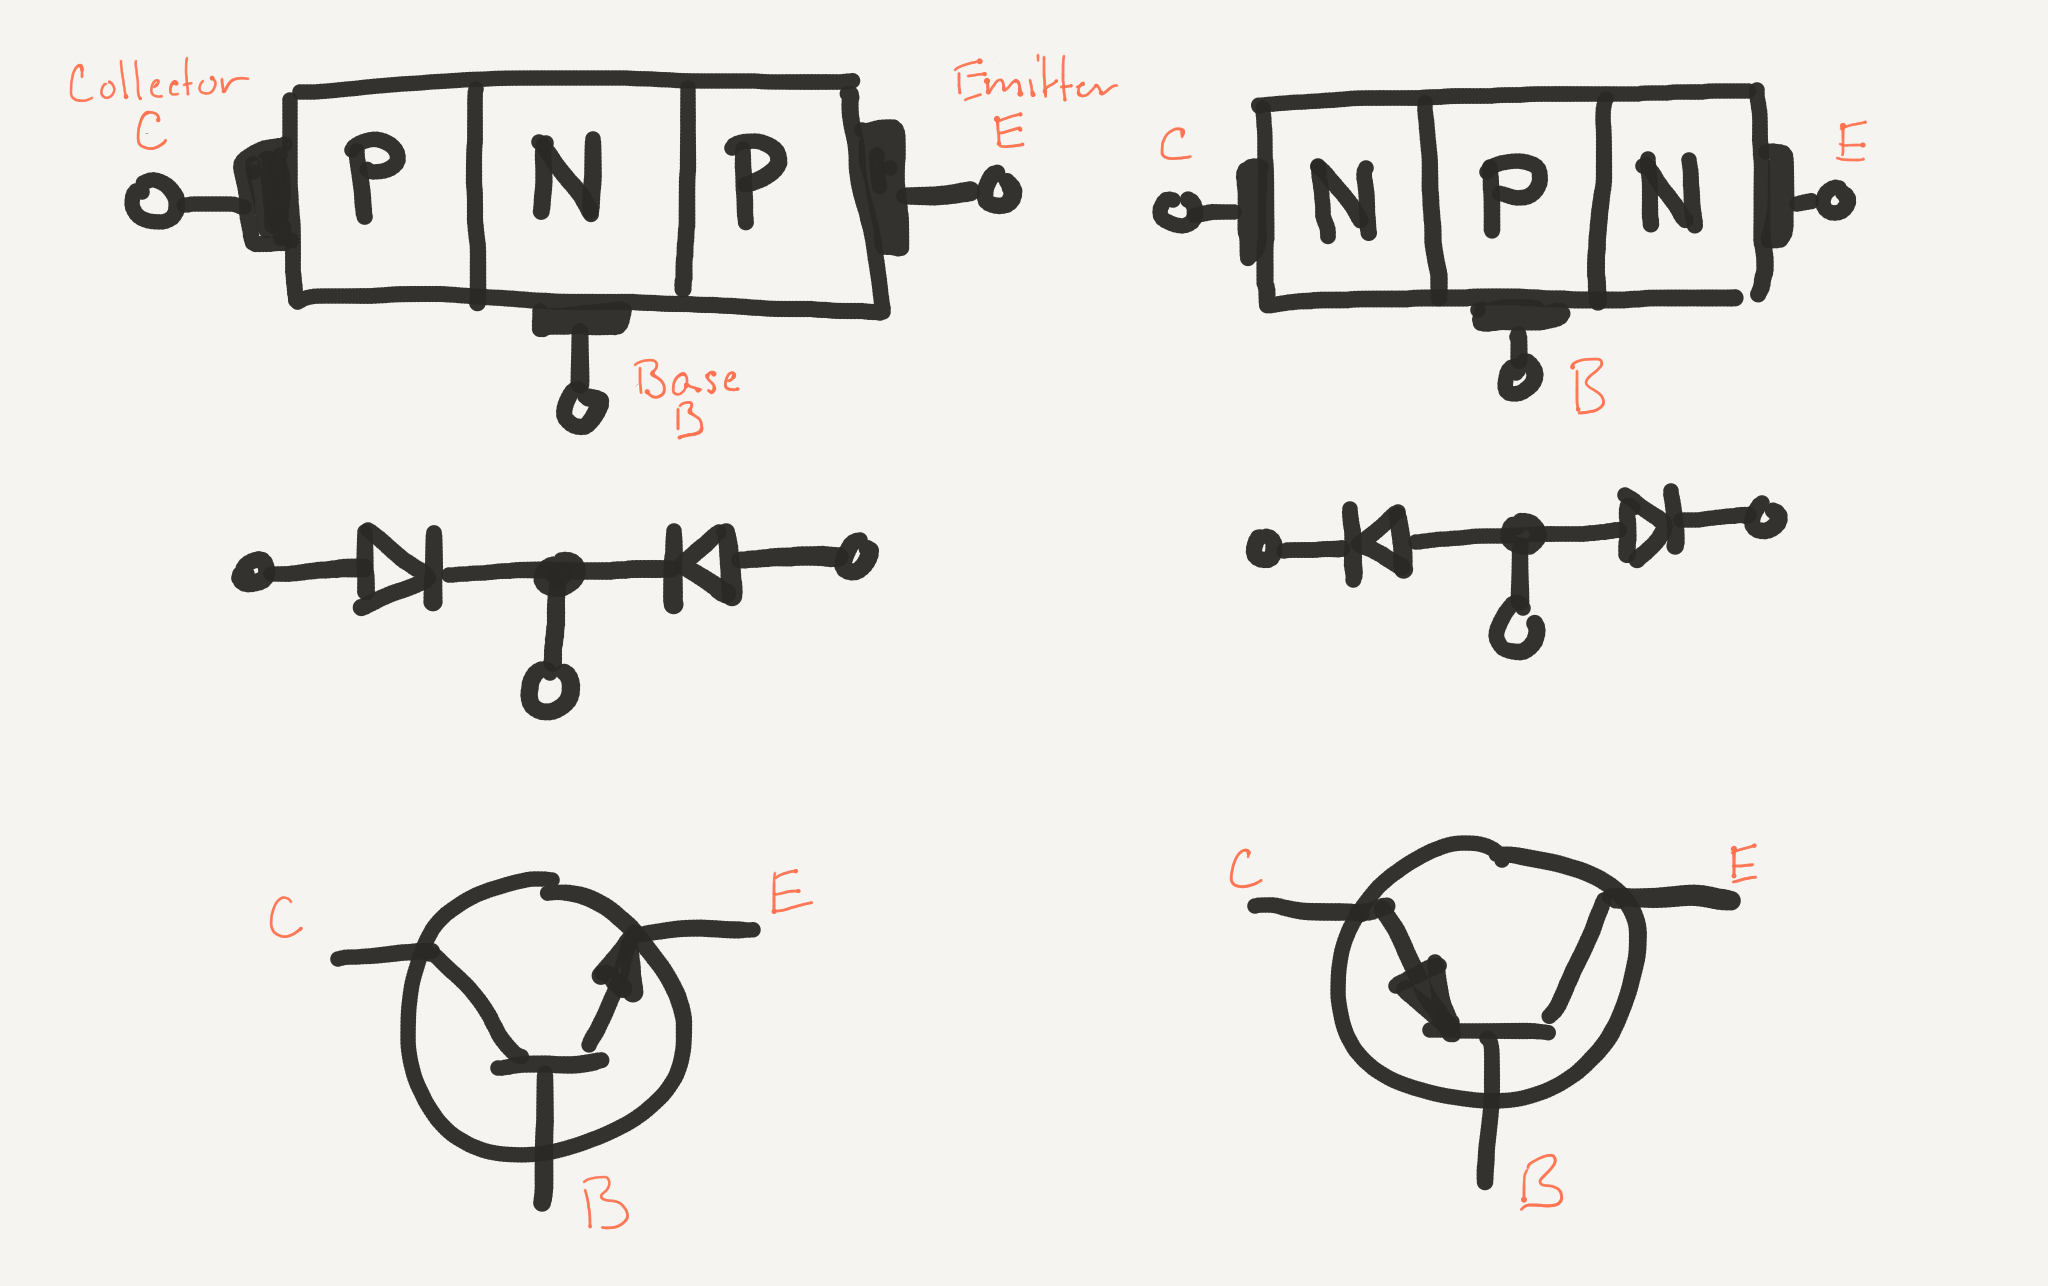 Collector
C
P N P
Emitter
E
Base
B
C
N P N
E
B
C
E
B
C
E
B